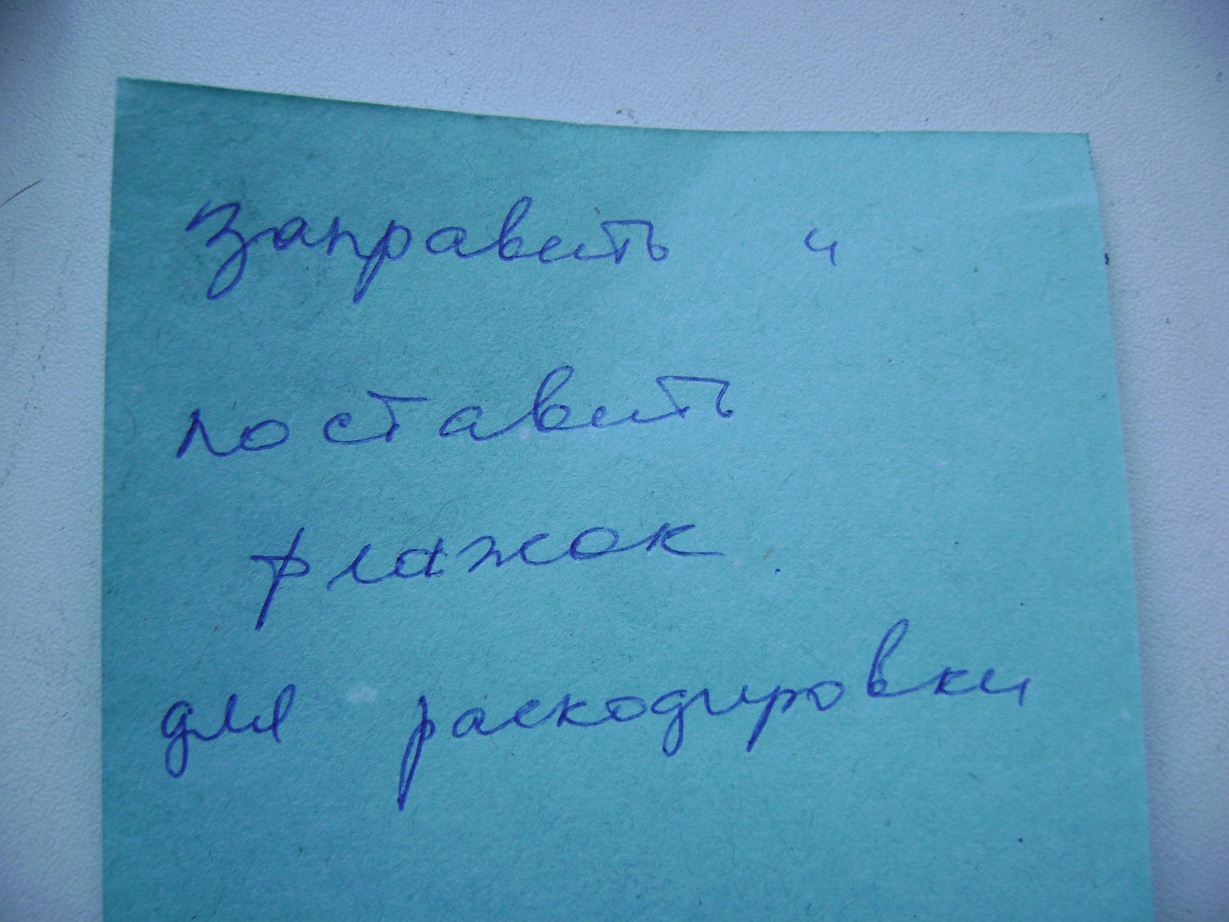 Заправить и
поставить
флажок
для раскодировки